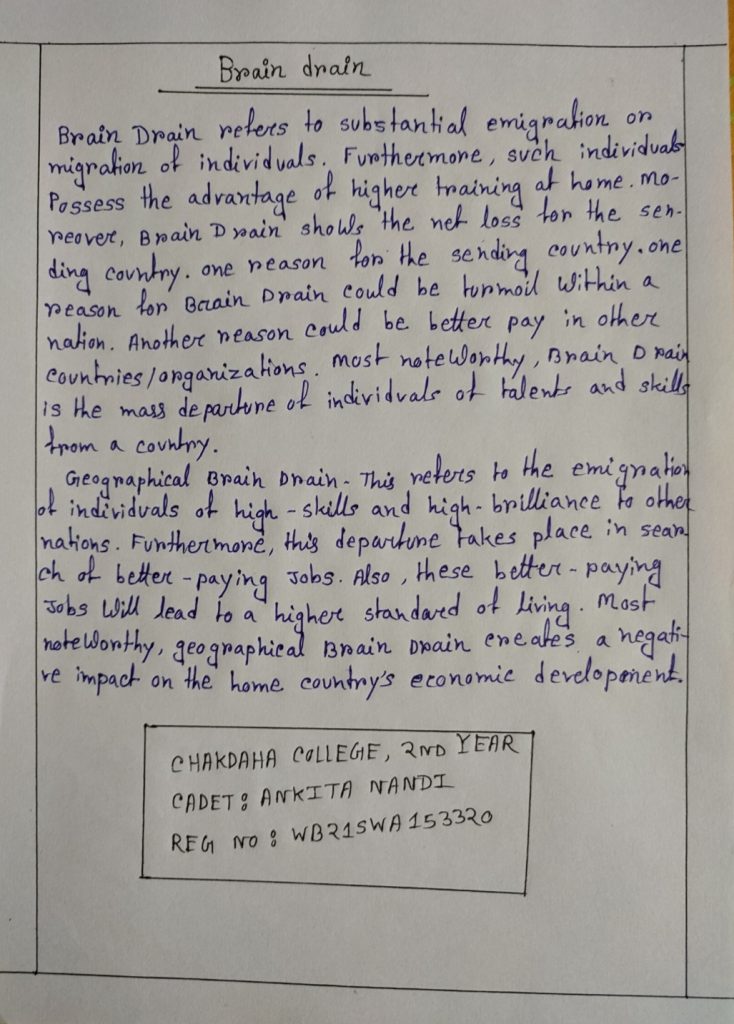 Brain drain
Brain Drain refers to substantial emigration or
migration of individuals. Furthermore, such individuals
Possess the advantage of higher training at home. Mo-
reover, Brain Drain shows the net loss for the sen-
ding country. one reason for the sending country. one
reason for Brain Drain could be turmoil within a
nation. Another reason could be better pay in other
countries/organizations. Most noteworthy, Brain Drain
is the mass departure of individuals of talents and skills
from a country.
Geographical Brain Drain - This refers to the emigration
of individuals of high - skills and high - brilliance to other
nations. Furthermore, this departure takes place in sear
ch of better - paying Jobs. Also, these better - paying
Jobs will lead to a higher standard of living. Most
noteworthy, geographical Brain Drain creates a negati-
ve impact on the home country's economic development.
CHAKDAHA COLLEGE, 2ND YEAR
CADET: ANKITA NANDI
REG NO: WB21SWA153320